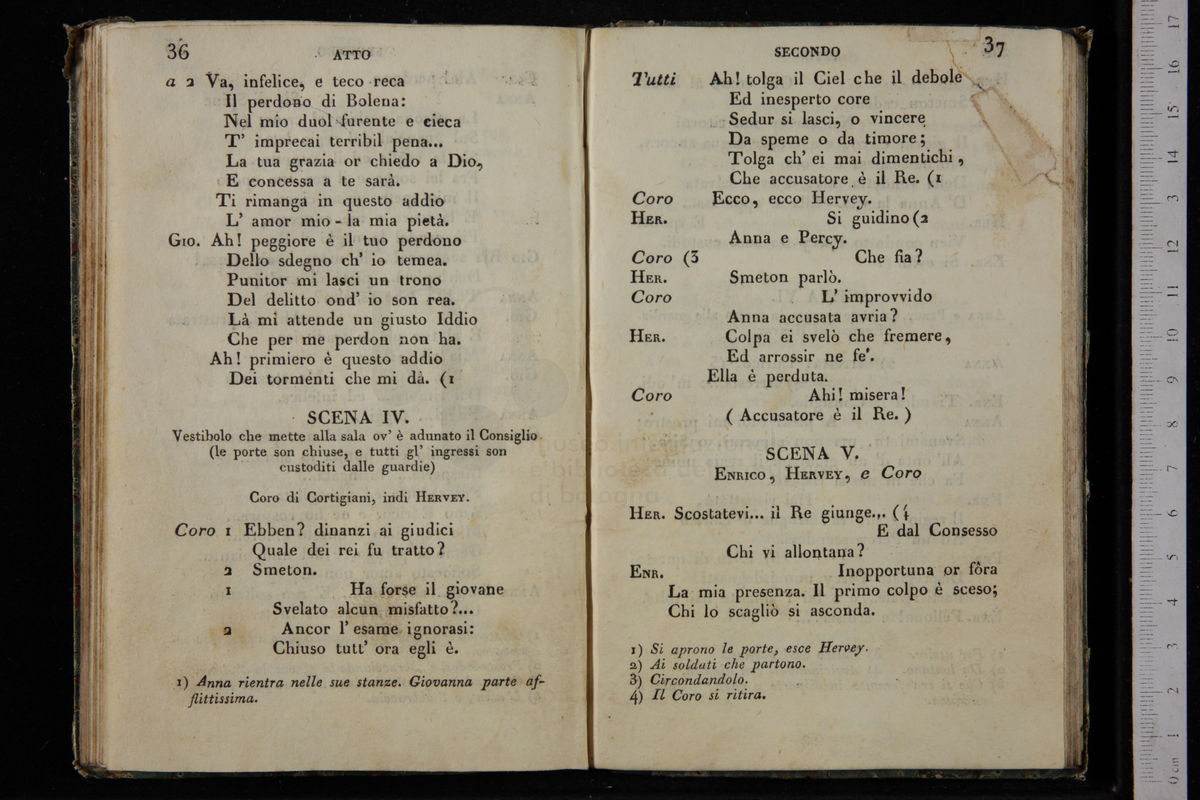 36
ATTO
a 2 Va, infelice, e teco reca
Il perdono di Bolena:
Nel mio duol furente e cieca
T' imprecai terribil pena...
La tua grazia or chiedo a Dio,
E concessa a te sarà.
Ti rimanga in questo addio
L' amor mio - la mia pietà.
Gio. Ah! peggiore è il tuo perdono
Dello sdegno ch' io temea.
Punitor mi lasci un trono
Del delitto ond' io son rea.
Là mi attende un giusto Iddio
Che per me perdon non ha.
Ah! primiero è questo addio
Dei tormenti che mi dà. (1
SCENA IV.
Vestibolo che mette alla sala ov' è adunato il Consiglio.
(le porte son chiuse, e tutti gl' ingressi son
custoditi dalle guardie)
Coro di Cortigiani, indi Hervey.
Coro 1 Ebben? dinanzi ai giudici
Quale dei rei fu tratto?
2 Smeton.
1 Ha forse il giovane
Svelato alcun misfatto?...
2 Ancor l' esame ignorasi:
Chiuso tutt' ora egli è.
1) Anna rientra nelle sue stanze. Giovanna parte af-
flittissima.
SECONDO
37
Tutti Ah! tolga il Ciel che il debole
Ed inesperto core
Sedur si lasci, o vincere
Da speme o da timore;
Tolga ch' ei mai dimentichi,
Che accusatore è il Re. (1
Coro Ecco, ecco Hervey.
Her. Si guidino (2
Anna e Percy.
Coro (3 Che fia?
Her. Smeton parlò.
Coro L' improvvido
Anna accusata avria?
Her. Colpa ei svelò che fremere,
Ed arrossir ne fe'.
Ella è perduta.
Coro Ahi! misera!
( Accusatore è il Re. )
SCENA V.
Enrico, Hervey, e Coro
Her. Scostatevi... il Re giunge... (4
E dal Consesso
Chi vi allontana?
Enr. Inopportuna or fôra
La mia presenza. Il primo colpo è sceso;
Chi lo scagliò si asconda.
1) Si aprono le porte, esce Hervey.
2) Ai soldati che partono.
3) Circondandolo.
4) Il Coro si ritira.
0 cm 1 2 3 4 5 6 7 8 9 10 11 12 13 14 15 16 17